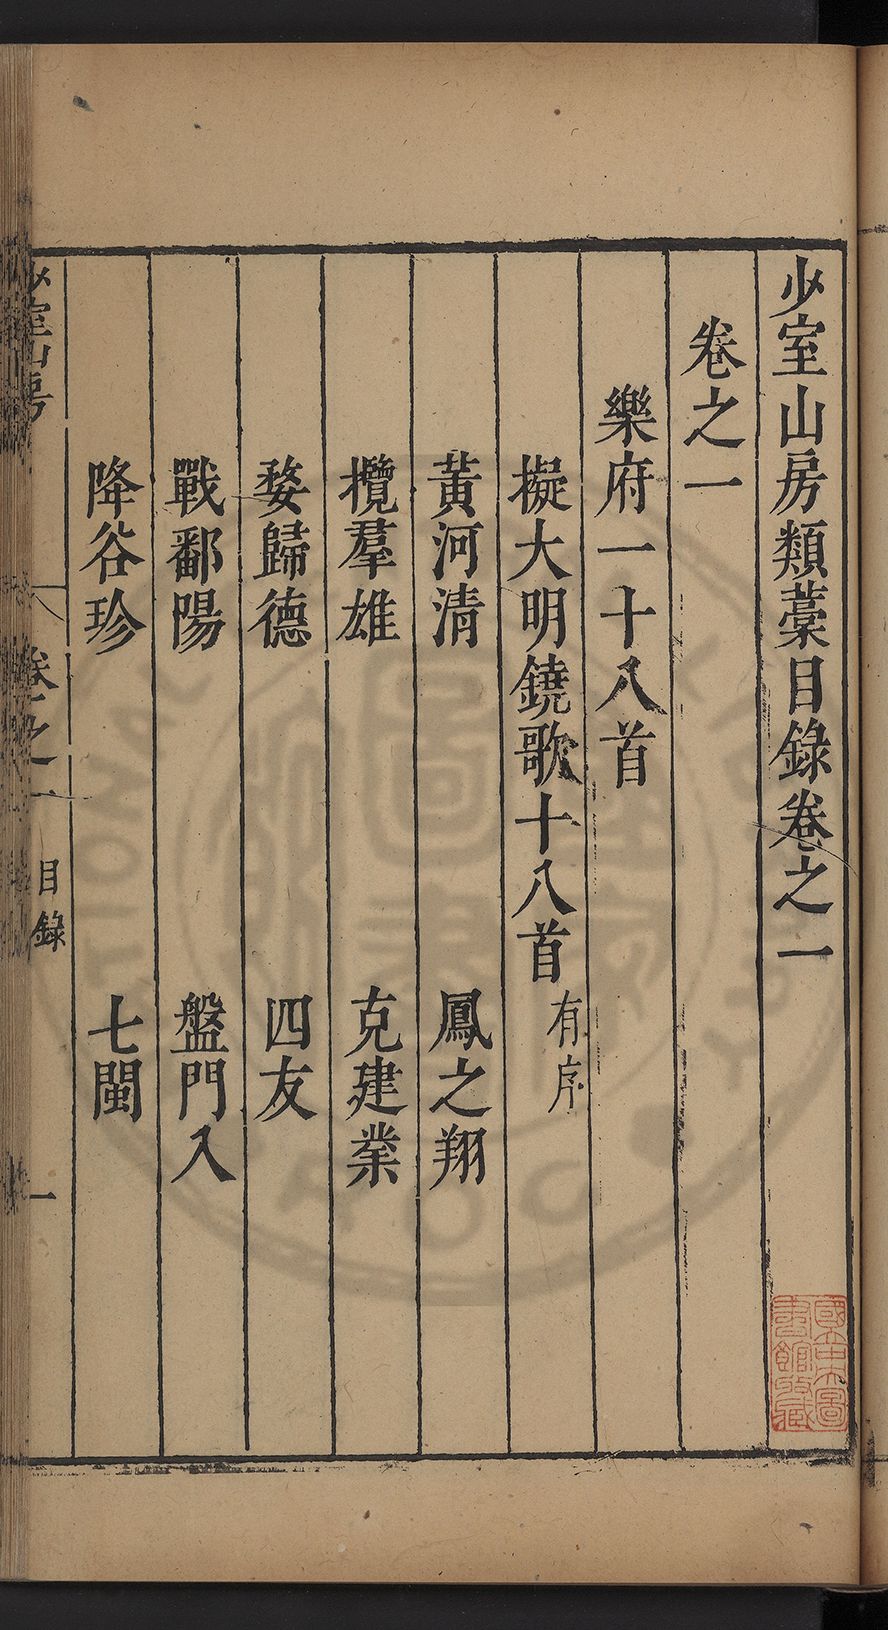 少室山房類藁目錄卷之一
卷之一
樂府一十八首
擬大明鐃歌十八首 有序
黃河清 鳳之翔
攬羣雄 克建業
婺歸德 四友
戰鄱陽 盤門入
降谷珍 七閩
少室山房 卷之一 目錄 一
國立中央圖書館收藏